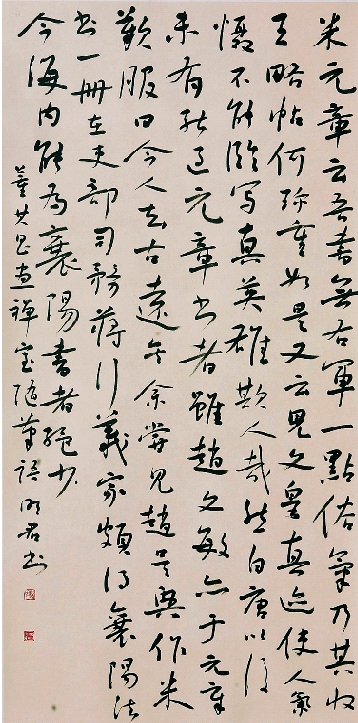 米元章云吾書無右軍一點俗氣乃其收
王略帖何珍重如是又云見文皇真迹使人氣
懾不能臨寫真英雄欺人哉然自唐以後
未有能過元章书者雖趙文敏亦于元章
歎服曰今人去古遠矣余嘗見趙吴興作米
书一冊在吏部司務蔣行義家頗得襄陽法
今海内能為襄陽書者絕少
董其昌畫禪室隨筆語明君书